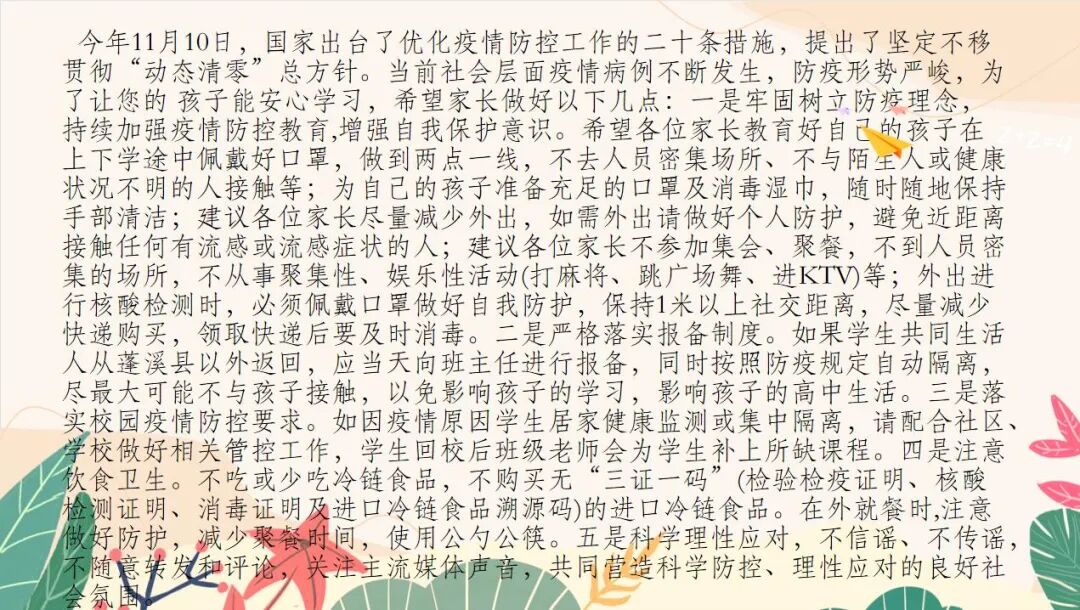 今年11月10日，国家出台了优化疫情防控工作的二十条措施，提出了坚定不移
贯彻“动态清零”总方针。当前社会层面疫情病例不断发生，防疫形势严峻，为
了让您的 孩子能安心学习，希望家长做好以下几点：一是牢固树立防疫理念，
持续加强疫情防控教育,增强自我保护意识。希望各位家长教育好自己的孩子在
上下学途中佩戴好口罩，做到两点一线，不去人员密集场所、不与陌生人或健康
状况不明的人接触等；为自己的孩子准备充足的口罩及消毒湿巾，随时随地保持
手部清洁；建议各位家长尽量减少外出，如需外出请做好个人防护，避免近距离
接触任何有流感或流感症状的人；建议各位家长不参加集会、聚餐，不到人员密
集的场所，不从事聚集性、娱乐性活动(打麻将、跳广场舞、进KTV)等；外出进
行核酸检测时，必须佩戴口罩做好自我防护，保持1米以上社交距离，尽量减少
快递购买，领取快递后要及时消毒。二是严格落实报备制度。如果学生共同生活
人从蓬溪县以外返回，应当天向班主任进行报备，同时按照防疫规定自动隔离，
尽最大可能不与孩子接触，以免影响孩子的学习，影响孩子的高中生活。三是落
实校园疫情防控要求。如因疫情原因学生居家健康监测或集中隔离，请配合社区、
学校做好相关管控工作，学生回校后班级老师会为学生补上所缺课程。四是注意
饮食卫生。不吃或少吃冷链食品，不购买无“三证一码”(检验检疫证明、核酸
检测证明、消毒证明及进口冷链食品溯源码)的进口冷链食品。在外就餐时,注意
做好防护，减少聚餐时间，使用公勺公筷。五是科学理性应对，不信谣、不传谣，
不随意转发和评论，关注主流媒体声音，共同营造科学防控、理性应对的良好社
会氛围。
2+2=4